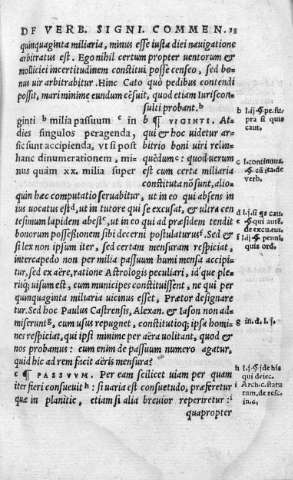 DE VERB. SIGNI. COMMEN. 15
quinquaginta miliaria, minus esse iusta diei nauigatione
arbitratus est. Ego nihil certum propter uentorum &
mollitiei incertitudinem constitui posse censeo, sed bo-
nus uir arbitrabitur. Hinc Cato quò pedibus contendi
possit, mari minime eundum cēsuit, quod etiam Iuriscon-
sulti probant.
ginti b milia passuum c in
dies singulos peragenda,
sic sunt accipienda, vt si post
hanc dinumerationem, mi-
nus quàm xx. milia super
b ¶ VIGINTI. A qui-
bus & hoc uidetur ar-
bitrio boni uiri relin-
quēdum: quod uerum
est cum certa miliaria
constituta nō sunt, alio-
quin hæc computatio seruabitur, ut in eo qui absens in
ius uocatus est, ut in tutore qui se excusat, & ultra cen
tesimum lapidem abest, ut in eo qui ad prædem tendens
bonorum possessionem sibi decerni postulaturus. Sed &
si lex non ipsum iter, sed certam mensuram respiciat,
intercapedo non per milia passuum humi mensa accipi-
tur, sed ex aëre, ratione Astrologis peculiari, id quæ ple-
uisum est, cum municipes constituissent, ne qui per
quinquaginta miliaria uicinus esset, Prætor designare
tur. Sed hoc Paulus Castrensis, Alexan. & Iason non ad-
miserunt, cum usus repugnet, constitutioq; ipsa homi-
nes respiciat, qui ipsi minime per aëra uolitant, quod &
nos probamus: cum enim de passuum numero agatur,
quid hic ad rem facit aëris mensura?
c ¶ PASSVVM. Per eam scilicet uiam per quam
iter fieri consueuit h: si uaria est consuetudo, præferetur
que in planitie, etiam si alia breuior reperiretur:
quapropter
pra si quis
caut.
verb.
quis ord.
g in. d. l. 3.